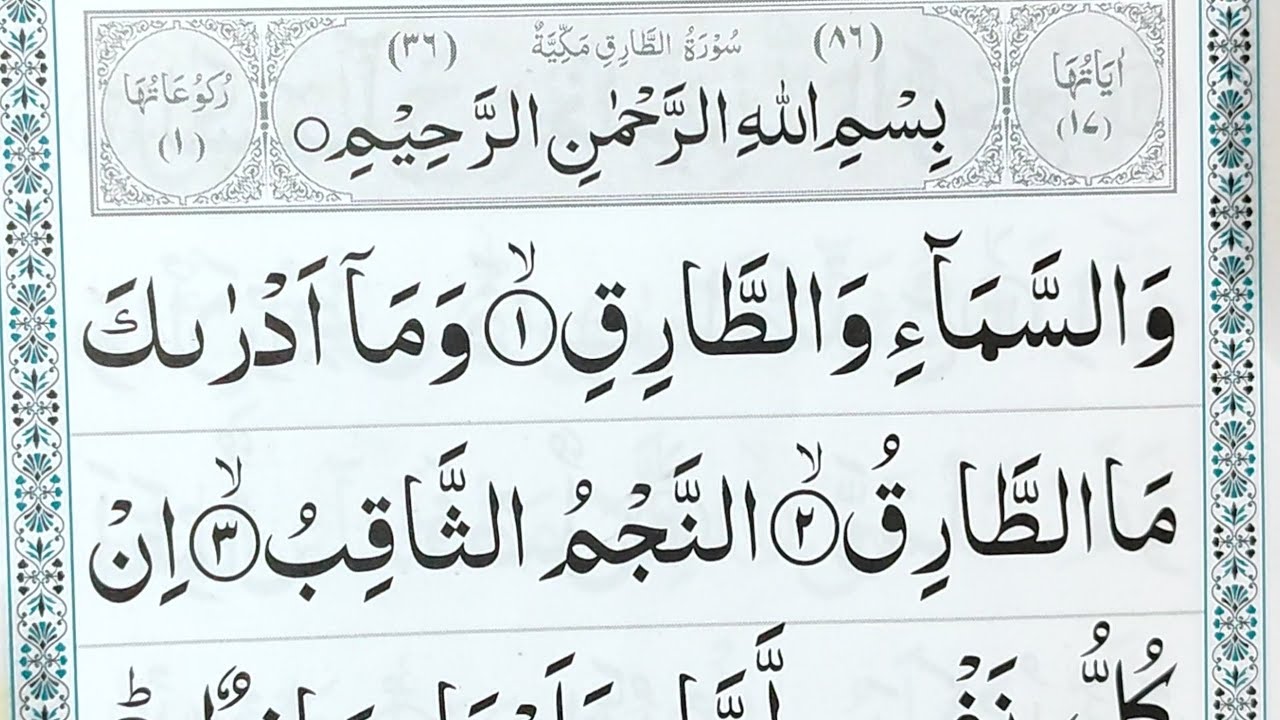 اٰيَاتُهَا
(١٧)
(٨٦) سُوْرَةُ الطَّارِقِ مَكِّيَّةٌ (٣٦)
رُكُوْعَاتُهَا
(١)
بِسْمِ اللّٰهِ الرَّحْمٰنِ الرَّحِيْمِ ○
وَالسَّمَآءِ وَالطَّارِقِ ۙ﴿١﴾ وَمَآ اَدْرٰىكَ
مَا الطَّارِقُ ۙ﴿٢﴾ النَّجْمُ الثَّاقِبُ ۙ﴿٣﴾ اِنْ
كُلُّ نَفْسٍ لَّمَّا عَلَيْهَا